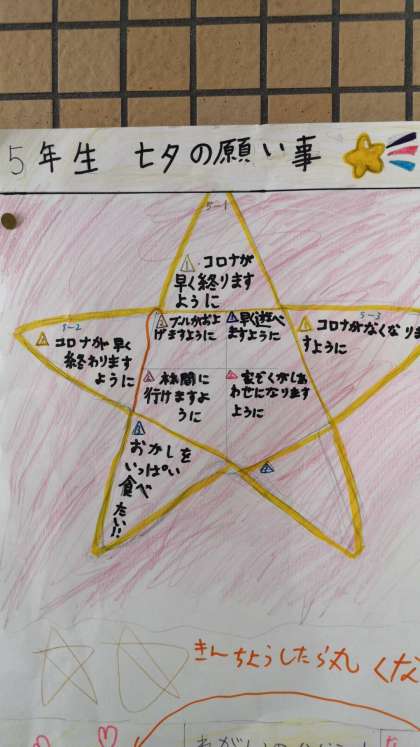 5年生 七夕の願い事
5-1
コロナが
早く終ります
ように
プールがおよ
げますように
早く遊べ
ますように
5-2
コロナが早く
終わります
ように
5-3
コロナがなくなりま
すように
行けますよ
うに
家ぞくがしあ
わせになります
ように
おかしを
いっぱい
食べ
たい!!
きんちょうしたら丸くな